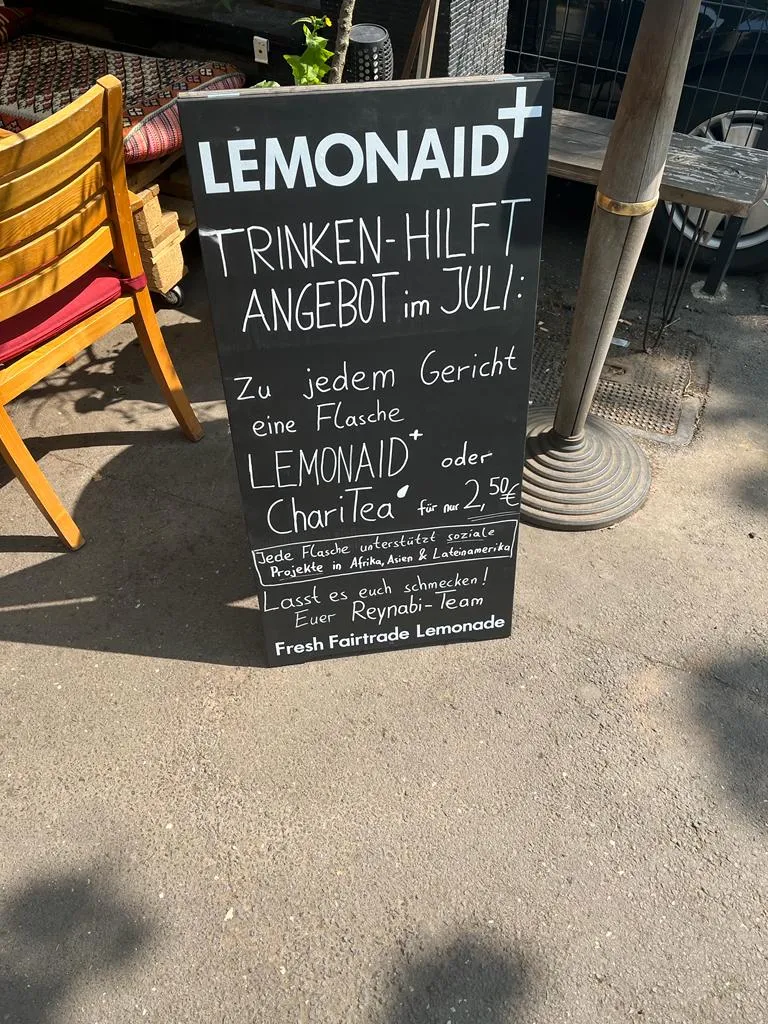 LEMONAID+
TRINKEN-HILFT
ANGEBOT im JULI:
Zu jedem Gericht
eine Flasche
LEMONAID+ oder
ChariTea für nur 2,50€
Jede Flasche unterstützt soziale
Projekte in Afrika, Asien & Lateinamerika
Lasst es euch schmecken!
Euer Reynabi-Team
Fresh Fairtrade Lemonade